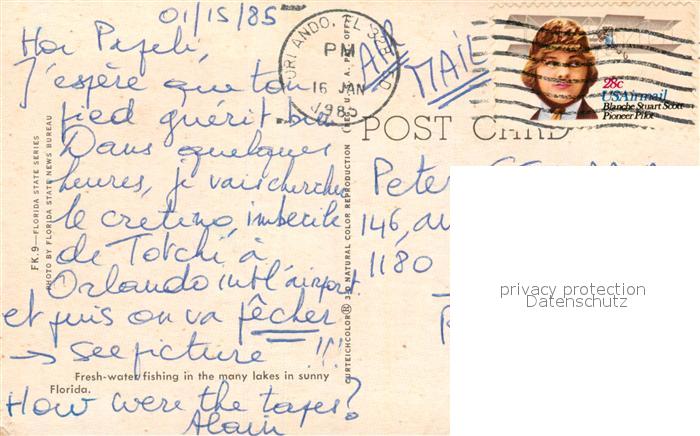 01/15/85
Hoi Pepeli,
J'espère que ton
pied guérit bien
Dans quelques
heures, je vais chercher
le cretino, imbecile
de Totchi à
Orlando int'l airport.
et puis on va pêcher
→ see picture !!!
Fresh-water fishing in the many lakes in sunny
Florida.
How were the tapes?
Alain
FK.9—FLORIDA STATE SERIES
PHOTO BY FLORIDA STATE NEWS BUREAU
CURTEICHCOLOR® 3D NATURAL COLOR REPRODUCTION
ORLANDO, FL 328
PM
16 JAN
1985
AIR
MAIL
28c
USAirmail
Blanche Stuart Scott
Pioneer Pilot
POST CARD
Peter
146, av
1180
privacy protection
Datenschutz